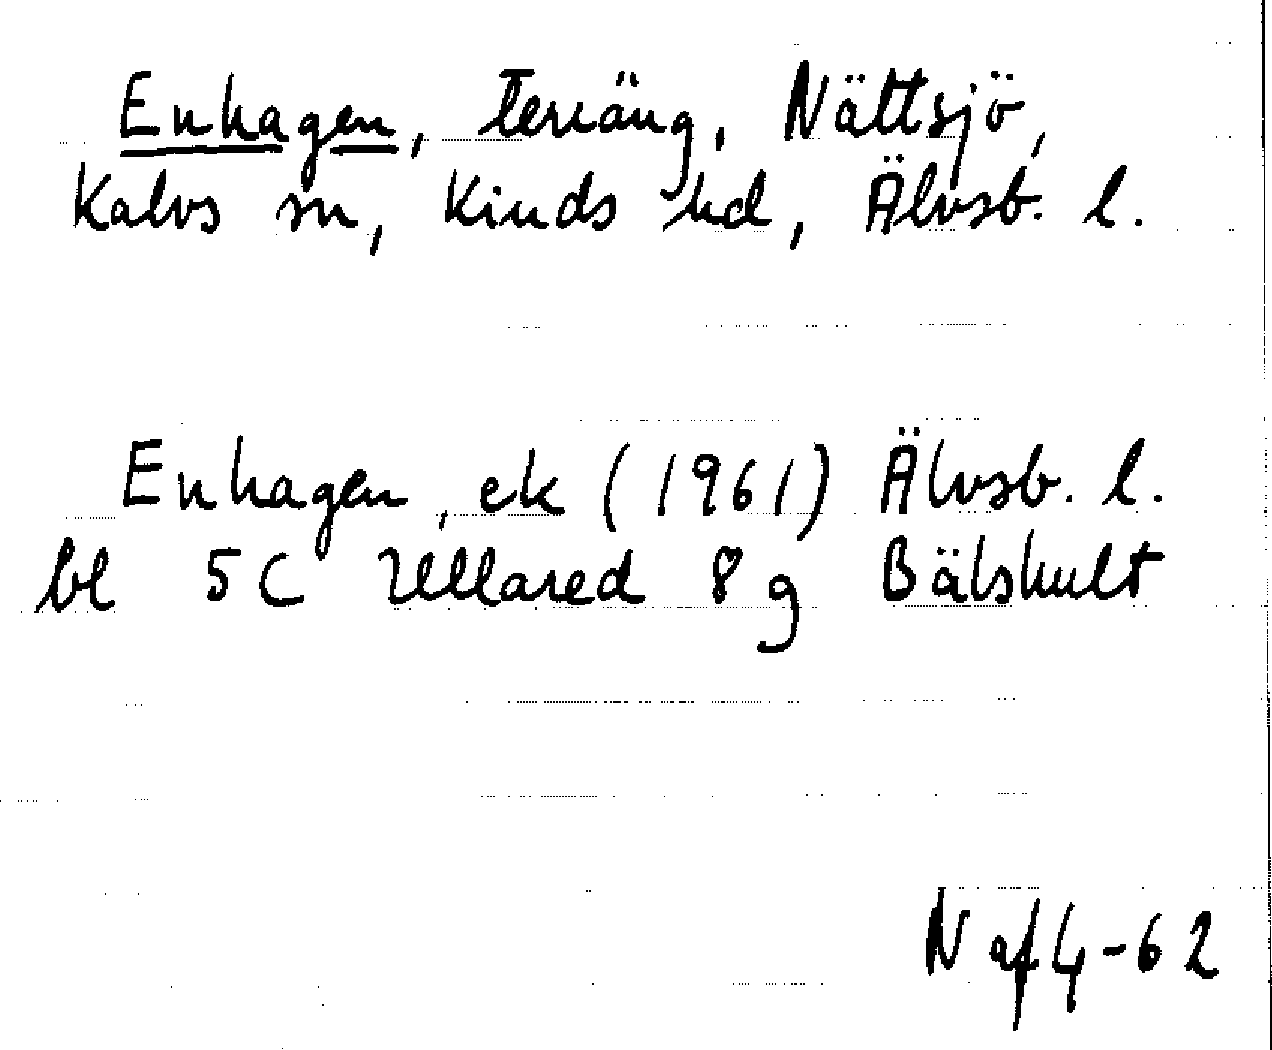 Enhagen, terräng, Nättsjö,
Kalvs sn, Kinds hd, Älvsb. l.
Enhagen, ek (1961) Älvsb. l.
bl 5C Ullared 8g Bälshult
N af 4-62